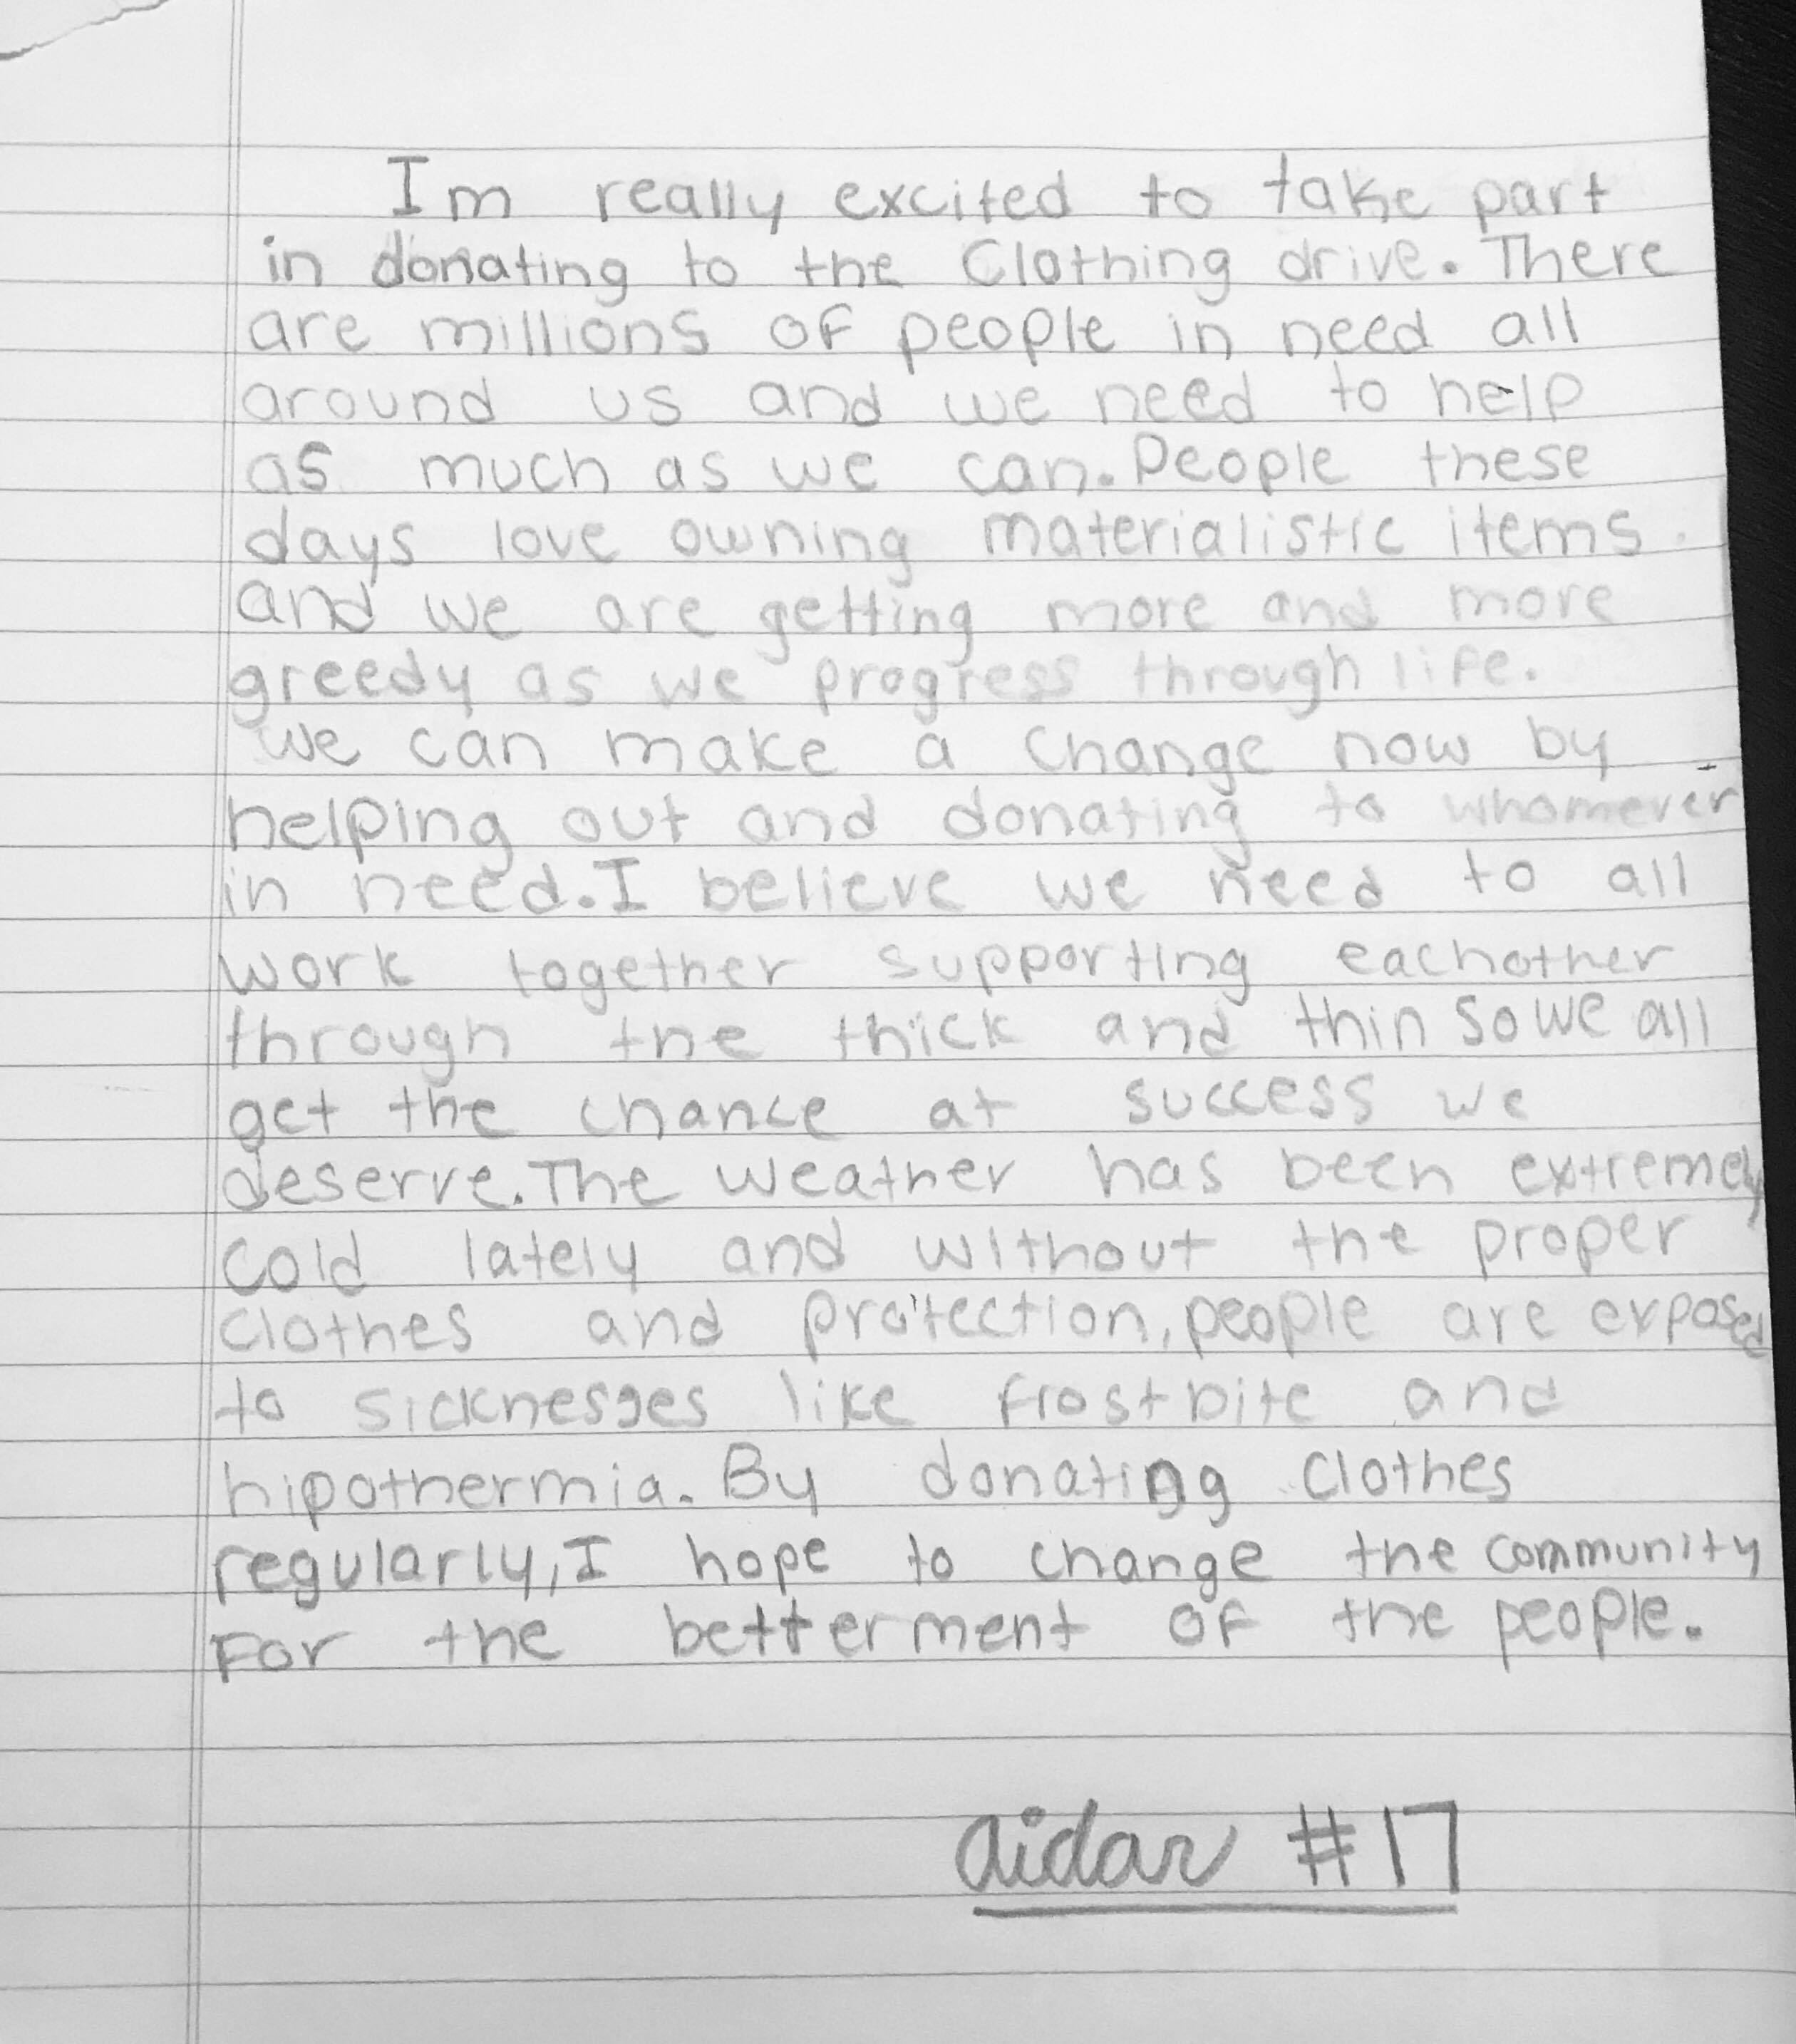 Im really excited to take part
in donating to the Clothing drive. There
are millions of people in need all
around us and we need to help
as much as we can. People these
days love owning materialistic items.
and we are getting more and more
greedy as we progress through life.
we can make a change now by
helping out and donating to whomever
in need. I believe we need to all
work together supporting eachother
through the thick and thin so we all
get the chance at success we
deserve. The weather has been extremely
cold lately and without the proper
clothes and protection, people are exposed
to sicknesses like frostbite and
hipothermia. By donating clothes
regularly, I hope to change the community
For the betterment of the people.
aidar #17